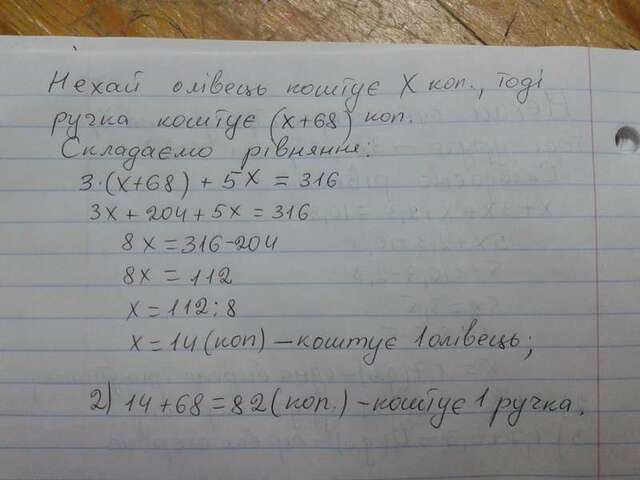 Нехай олівець коштує X коп., тоді
ручка коштує (x+68) коп.
Складаємо рівняння:
3·(x+68) + 5x = 316
3x + 204 + 5x = 316
8x = 316-204
8x = 112
x = 112:8
x = 14 (коп) – коштує 1 олівець;
2) 14 + 68 = 82 (коп.) – коштує 1 ручка.